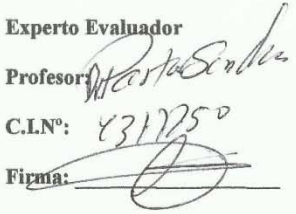 Experto Evaluador
Profesor:
C.I.Nº: 4317750
Firma: